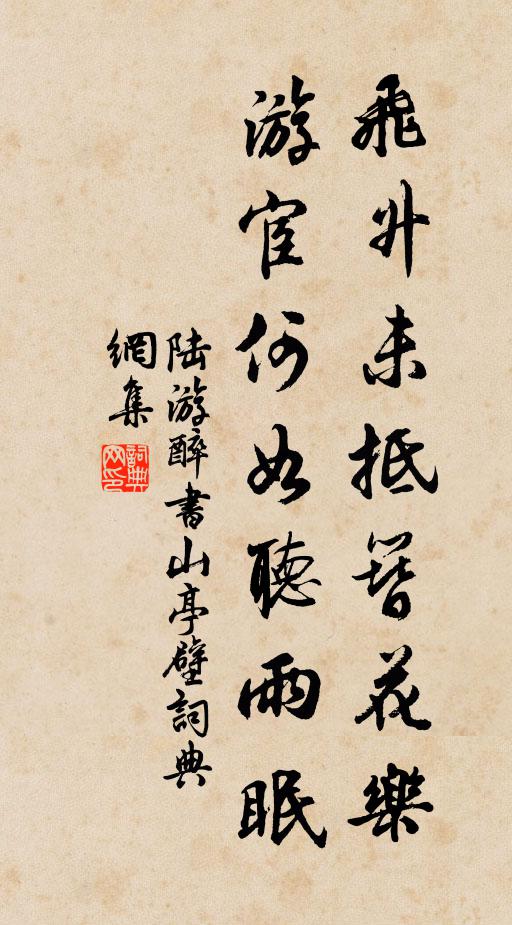 飛升未抵簪花樂
游宦何如聽雨眠
陸游醉書山亭壁詞典
網集
詞典
网印